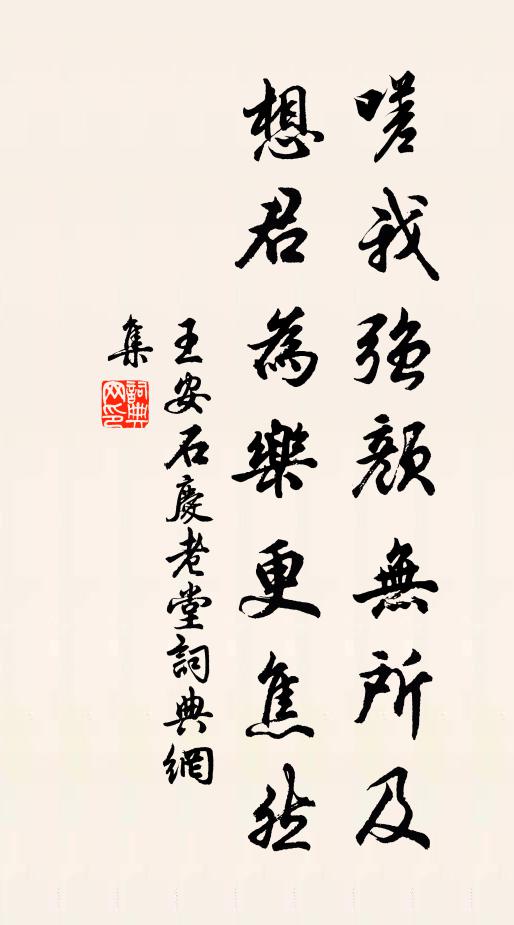 嗟我強顏無所及
想君為樂更焦然
王安石慶老堂詞典網
集
詞典
网印